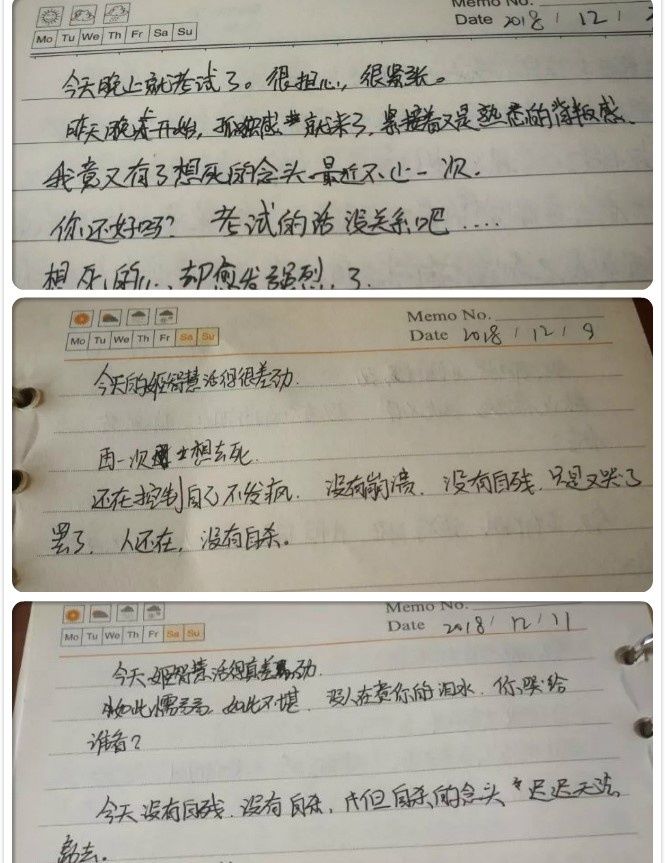 Memo No.
Mo Tu We Th Fr Sa Su
Date 2018 / 12 /
今天晚上就考试了。很担心,很紧张。
昨天晚 开始,孤独感 就来了,紧接着又是熟悉的背叛感。
我竟又有了想死的念头 最近不止一次.
你还好吗? 考试的话 没关系吧....
想死的心,却愈发强烈了
Memo No.
Mo Tu We Th Fr Sa Su
Date 2018 / 12 / 9
今天的姬 慧活得很差劲.
再一次 想去死.
还在控制自己不发疯. 没有崩溃. 没有自残. 只是又哭了
罢了. 人还在, 没有自杀。
Memo No.
Date 2018 / 12 / 11
Mo Tu We Th Fr Sa Su
今天姬 慧活得真差劲.
如此懦弱, 如此不堪. 没人在意你的泪水. 你哭给
谁看?
今天没有自残. 没有自杀, 但自杀的念头 迟迟无法
散去.